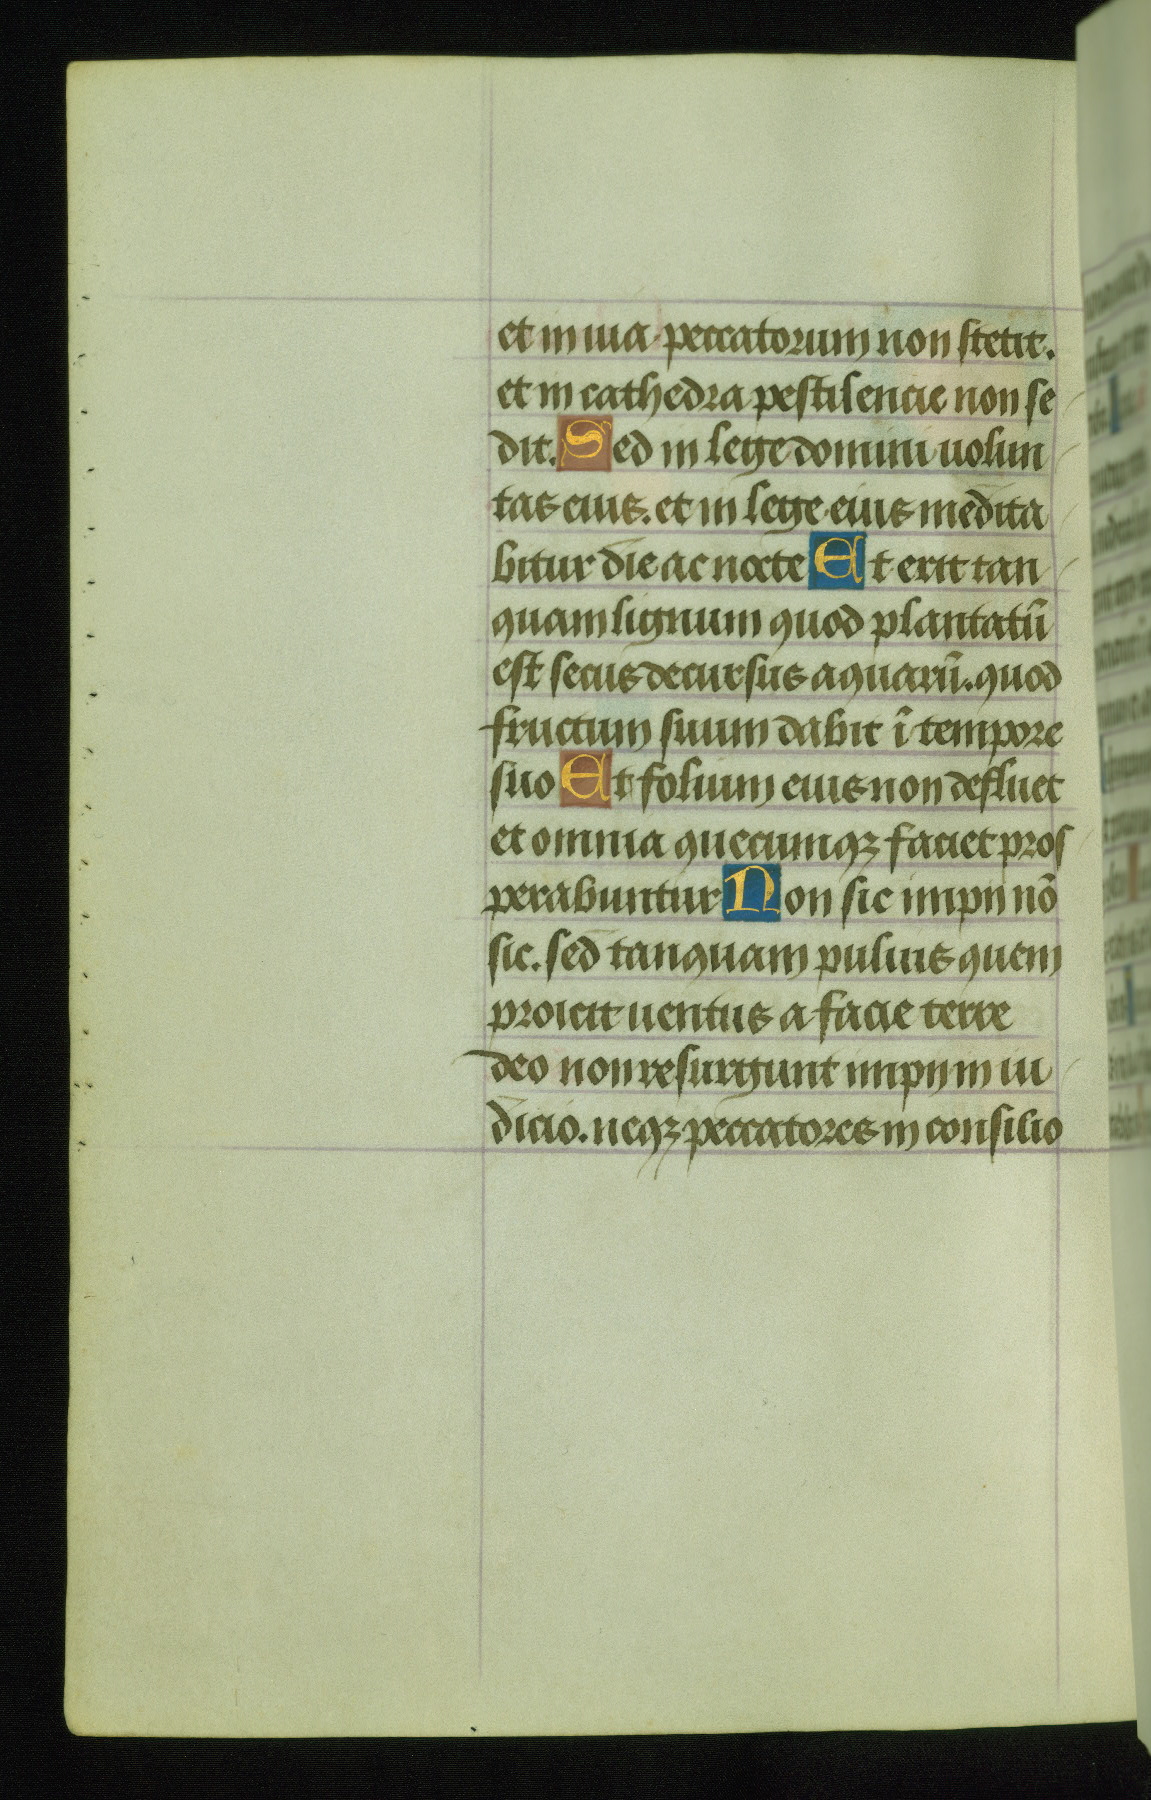 et in uia peccatorum non stetit.
et in cathedra pestilencie non se
dit. Sed in lege domini uolun
tas eius. et in lege eius medita
bitur die ac nocte Et erit tan
quam lignum quod plantatū
est secus decursus aquarū. quod
fructum suum dabit ī tempore
suo Et folium eius non defluet
et omnia quecumqꝫ faciet pros
perabuntur Non sic impii nō
sic. sed tanquam puluis quem
proicit uentus a facie terre
deo non resurgunt impii in iu
dicio. neqꝫ peccatores in consilio